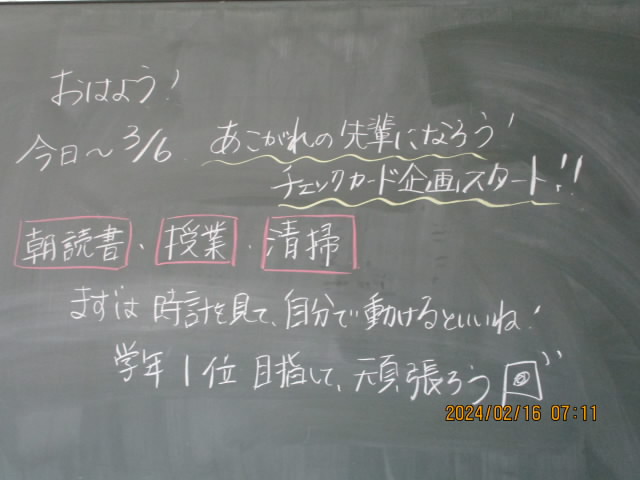 おはよう!
今日〜3/6 あこがれの先輩になろう!
チェックカード企画スタート!!
朝読書・授業・清掃
まずは時計を見て、自分で動けるといいね!
学年1位目指して、頑張ろう
2024/02/16 07:11